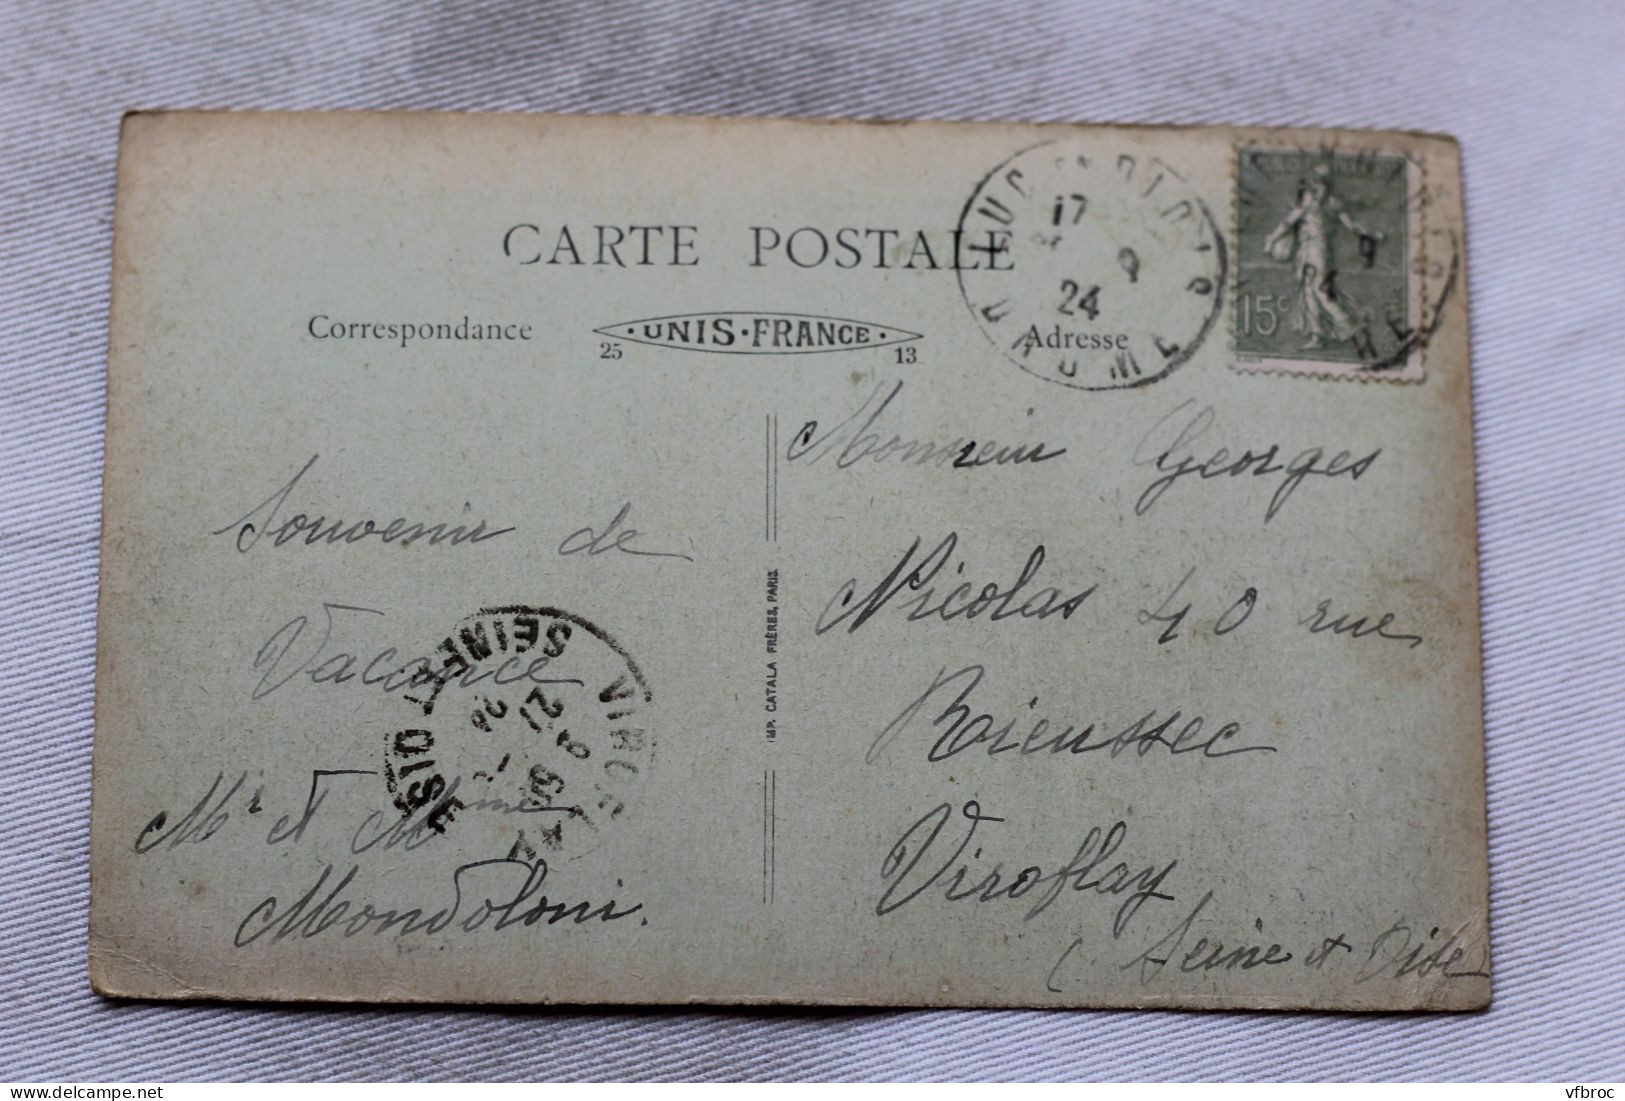 CARTE POSTALE
Correspondance
· UNIS · FRANCE ·
25 13
Adresse
LUC EN DIOIS
17
9
24
DROME
15c
9
24
Monsieur Georges
Nicolas 40 rue
Rieussec
Viroflay
(Seine et Oise
Souvenir de
Vacance
Mr et Mme
Mondoloni.
VIROFLAY
SEINE ET OISE
21
9
IMP. CATALA FRÈRES, PARIS
Delcampe.net
vfbroc